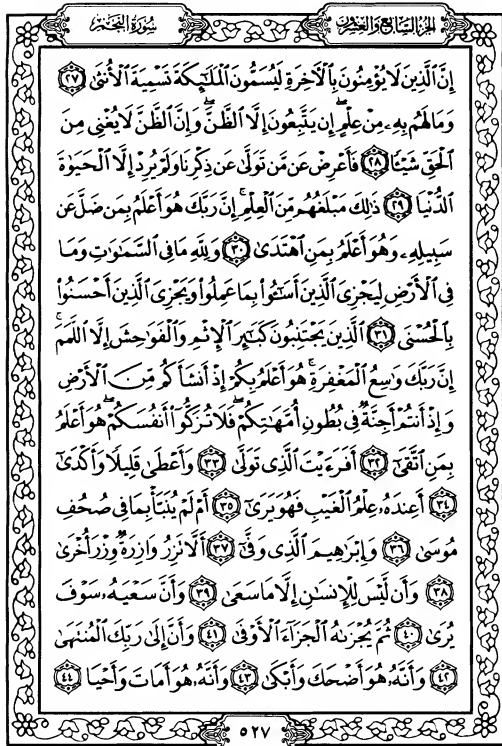 الجزء السابع والعشرون
سورة النجم
إِنَّ ٱلَّذِينَ لَا يُؤْمِنُونَ بِٱلْآخِرَةِ لَيُسَمُّونَ ٱلْمَلَٰٓئِكَةَ تَسْمِيَةَ ٱلْأُنثَىٰ ٢٧
وَمَا لَهُم بِهِۦ مِنْ عِلْمٍ ۖ إِن يَتَّبِعُونَ إِلَّا ٱلظَّنَّ ۖ وَإِنَّ ٱلظَّنَّ لَا يُغْنِى مِنَ
ٱلْحَقِّ شَيْـًٔا ٢٨ فَأَعْرِضْ عَن مَّن تَوَلَّىٰ عَن ذِكْرِنَا وَلَمْ يُرِدْ إِلَّا ٱلْحَيَوٰةَ
ٱلدُّنْيَا ٢٩ ذَٰلِكَ مَبْلَغُهُم مِّنَ ٱلْعِلْمِ ۚ إِنَّ رَبَّكَ هُوَ أَعْلَمُ بِمَن ضَلَّ عَن
سَبِيلِهِۦ وَهُوَ أَعْلَمُ بِمَنِ ٱهْتَدَىٰ ٣٠ وَلِلَّهِ مَا فِى ٱلسَّمَٰوَٰتِ وَمَا
فِى ٱلْأَرْضِ لِيَجْزِىَ ٱلَّذِينَ أَسَٰٓـُٔوا۟ بِمَا عَمِلُوا۟ وَيَجْزِىَ ٱلَّذِينَ أَحْسَنُوا۟
بِٱلْحُسْنَى ٣١ ٱلَّذِينَ يَجْتَنِبُونَ كَبَٰٓئِرَ ٱلْإِثْمِ وَٱلْفَوَٰحِشَ إِلَّا ٱللَّمَمَ ۚ
إِنَّ رَبَّكَ وَٰسِعُ ٱلْمَغْفِرَةِ ۚ هُوَ أَعْلَمُ بِكُمْ إِذْ أَنشَأَكُم مِّنَ ٱلْأَرْضِ
وَإِذْ أَنتُمْ أَجِنَّةٌ فِى بُطُونِ أُمَّهَٰتِكُمْ ۖ فَلَا تُزَكُّوٓا۟ أَنفُسَكُمْ ۖ هُوَ أَعْلَمُ
بِمَنِ ٱتَّقَىٰٓ ٣٢ أَفَرَءَيْتَ ٱلَّذِى تَوَلَّىٰ ٣٣ وَأَعْطَىٰ قَلِيلًا وَأَكْدَىٰٓ
٣٤ أَعِندَهُۥ عِلْمُ ٱلْغَيْبِ فَهُوَ يَرَىٰٓ ٣٥ أَمْ لَمْ يُنَبَّأْ بِمَا فِى صُحُفِ
مُوسَىٰ ٣٦ وَإِبْرَٰهِيمَ ٱلَّذِى وَفَّىٰٓ ٣٧ أَلَّا تَزِرُ وَازِرَةٌ وِزْرَ أُخْرَىٰ
٣٨ وَأَن لَّيْسَ لِلْإِنسَٰنِ إِلَّا مَا سَعَىٰ ٣٩ وَأَنَّ سَعْيَهُۥ سَوْفَ
يُرَىٰ ٤٠ ثُمَّ يُجْزَىٰهُ ٱلْجَزَآءَ ٱلْأَوْفَىٰ ٤١ وَأَنَّ إِلَىٰ رَبِّكَ ٱلْمُنتَهَىٰ
٤٢ وَأَنَّهُۥ هُوَ أَضْحَكَ وَأَبْكَىٰ ٤٣ وَأَنَّهُۥ هُوَ أَمَاتَ وَأَحْيَا ٤٤
٥٢٧